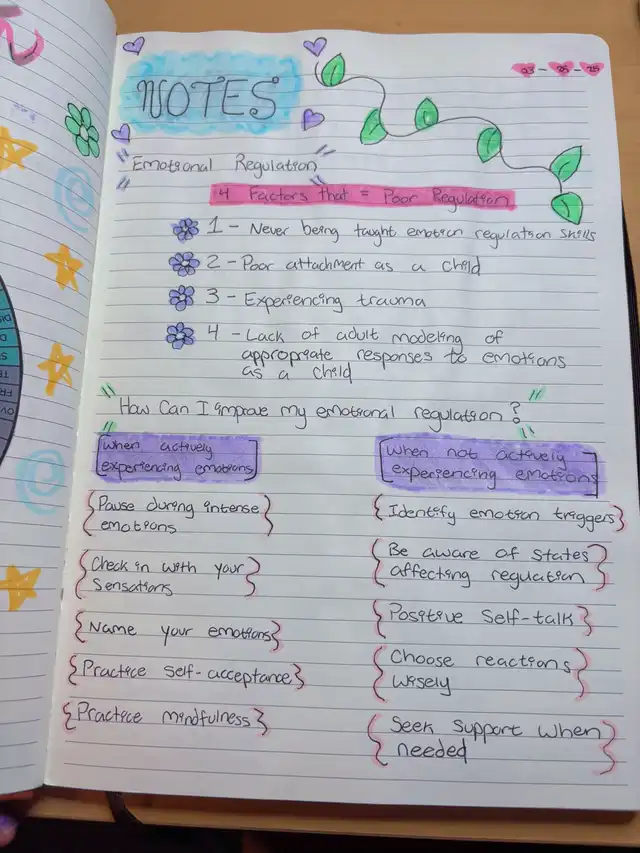 NOTES
03 - 25 - 25
"Emotional Regulation"
4 Factors that = Poor Regulation
1 - Never being taught emotion regulation skills
2 - Poor attachment as a child
3 - Experiencing trauma
4 - Lack of adult modeling of
appropriate responses to emotions
as a child
"How Can I improve my emotional regulation?"
[When actively
experiencing emotions]
{Pause during intense
emotions}
{Check in with your
Sensations}
{Name your emotions}
{Practice self-acceptance}
{Practice mindfulness}
[When not actively
experiencing emotions]
{Identify emotion triggers}
{Be aware of states
affecting reguation}
{Positive Self-talk}
{Choose reactions
Wisely}
{Seek support when
needed}